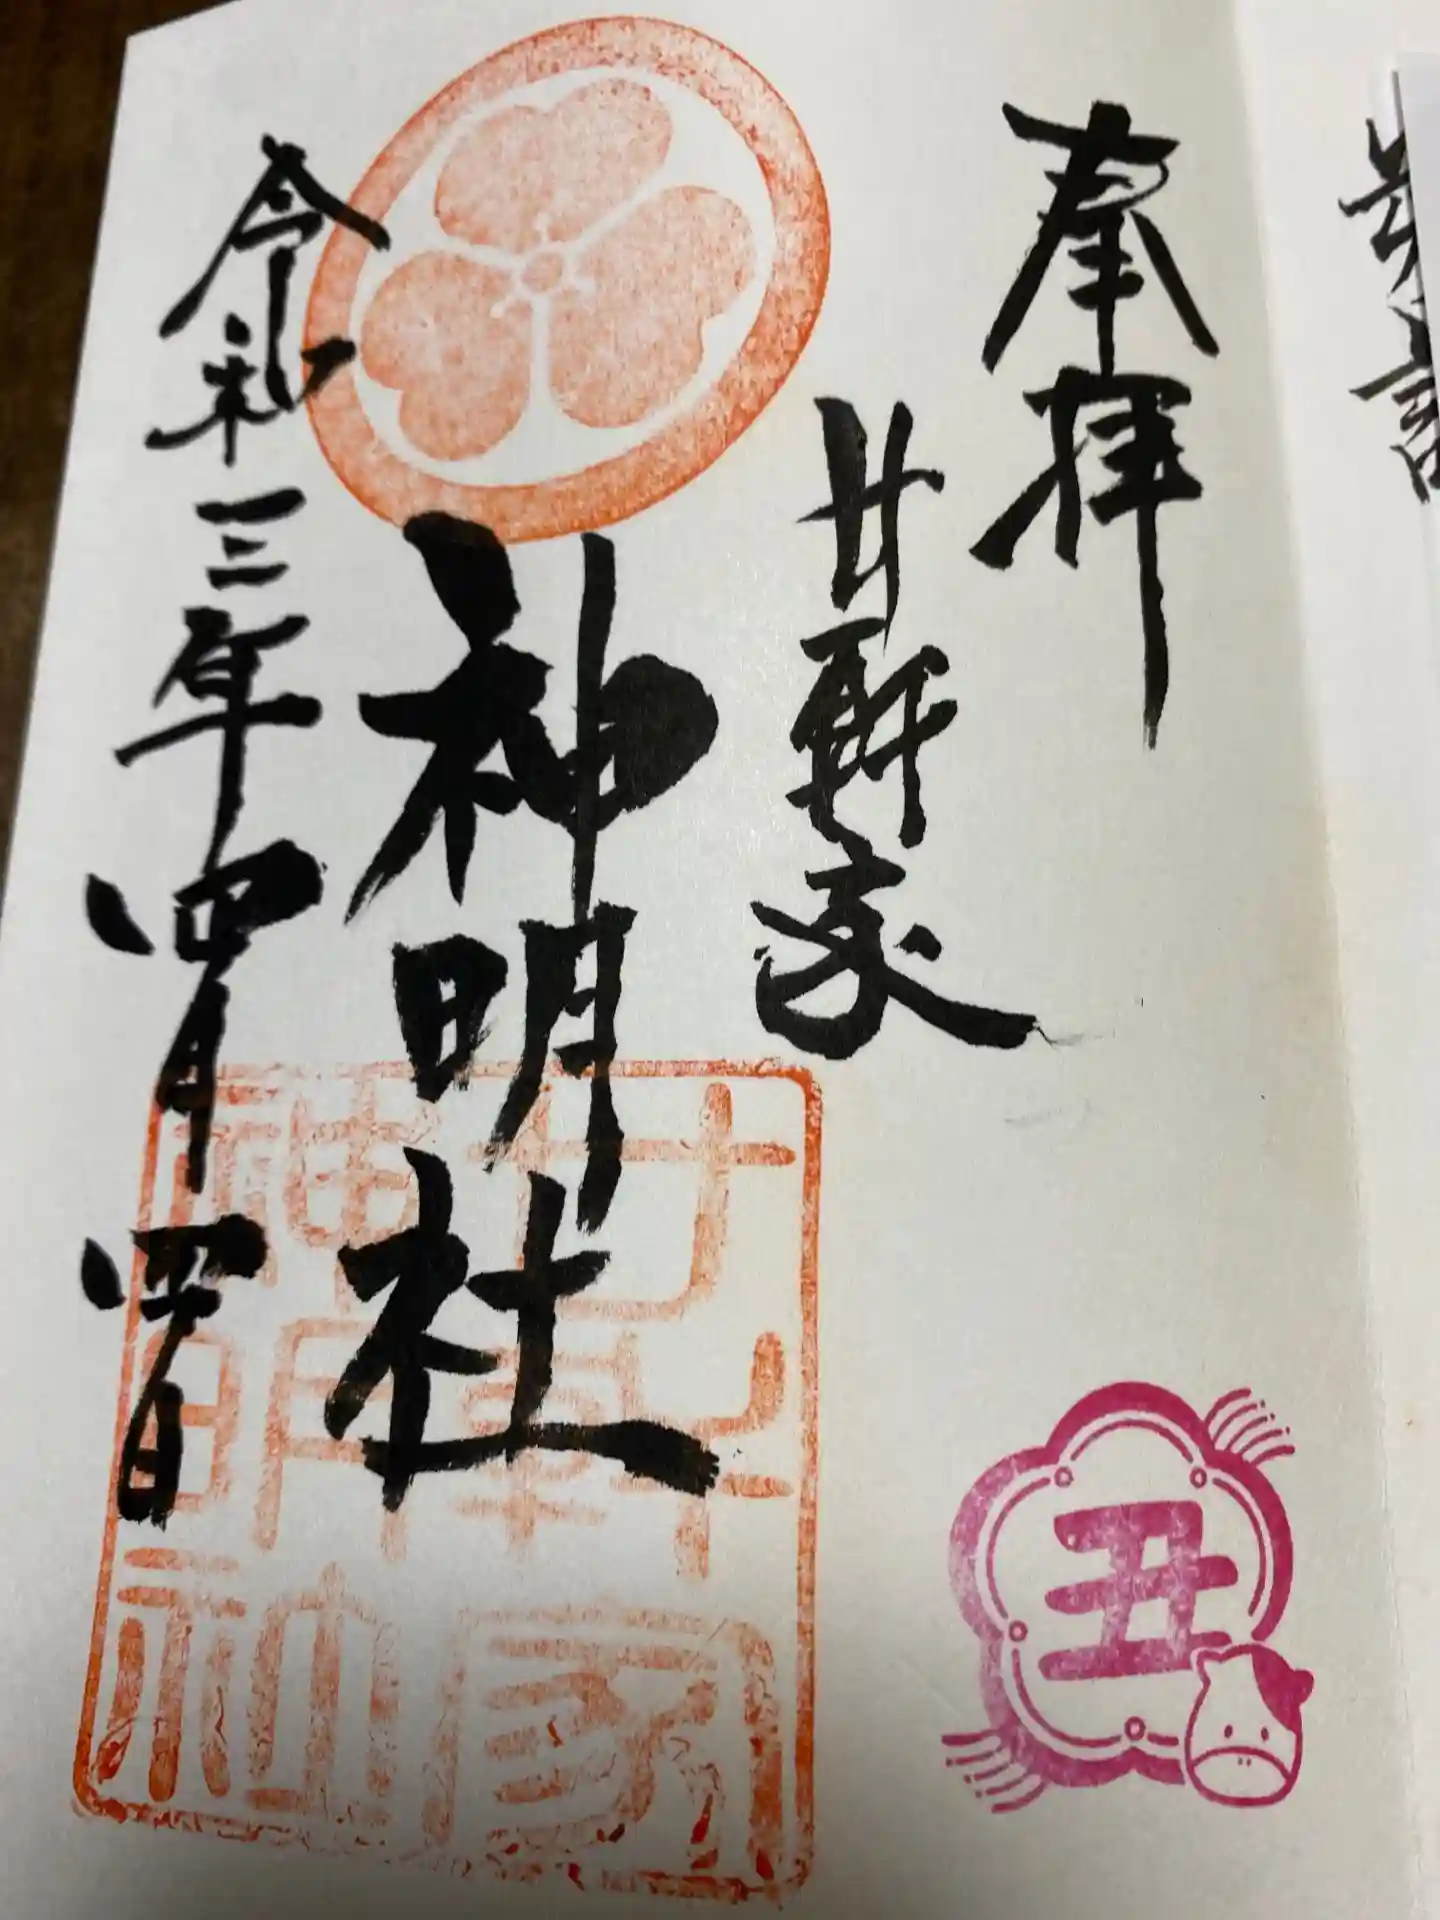 奉拝
廿軒家
神明社
令和三年四月四日
廿軒家
神明社
丑